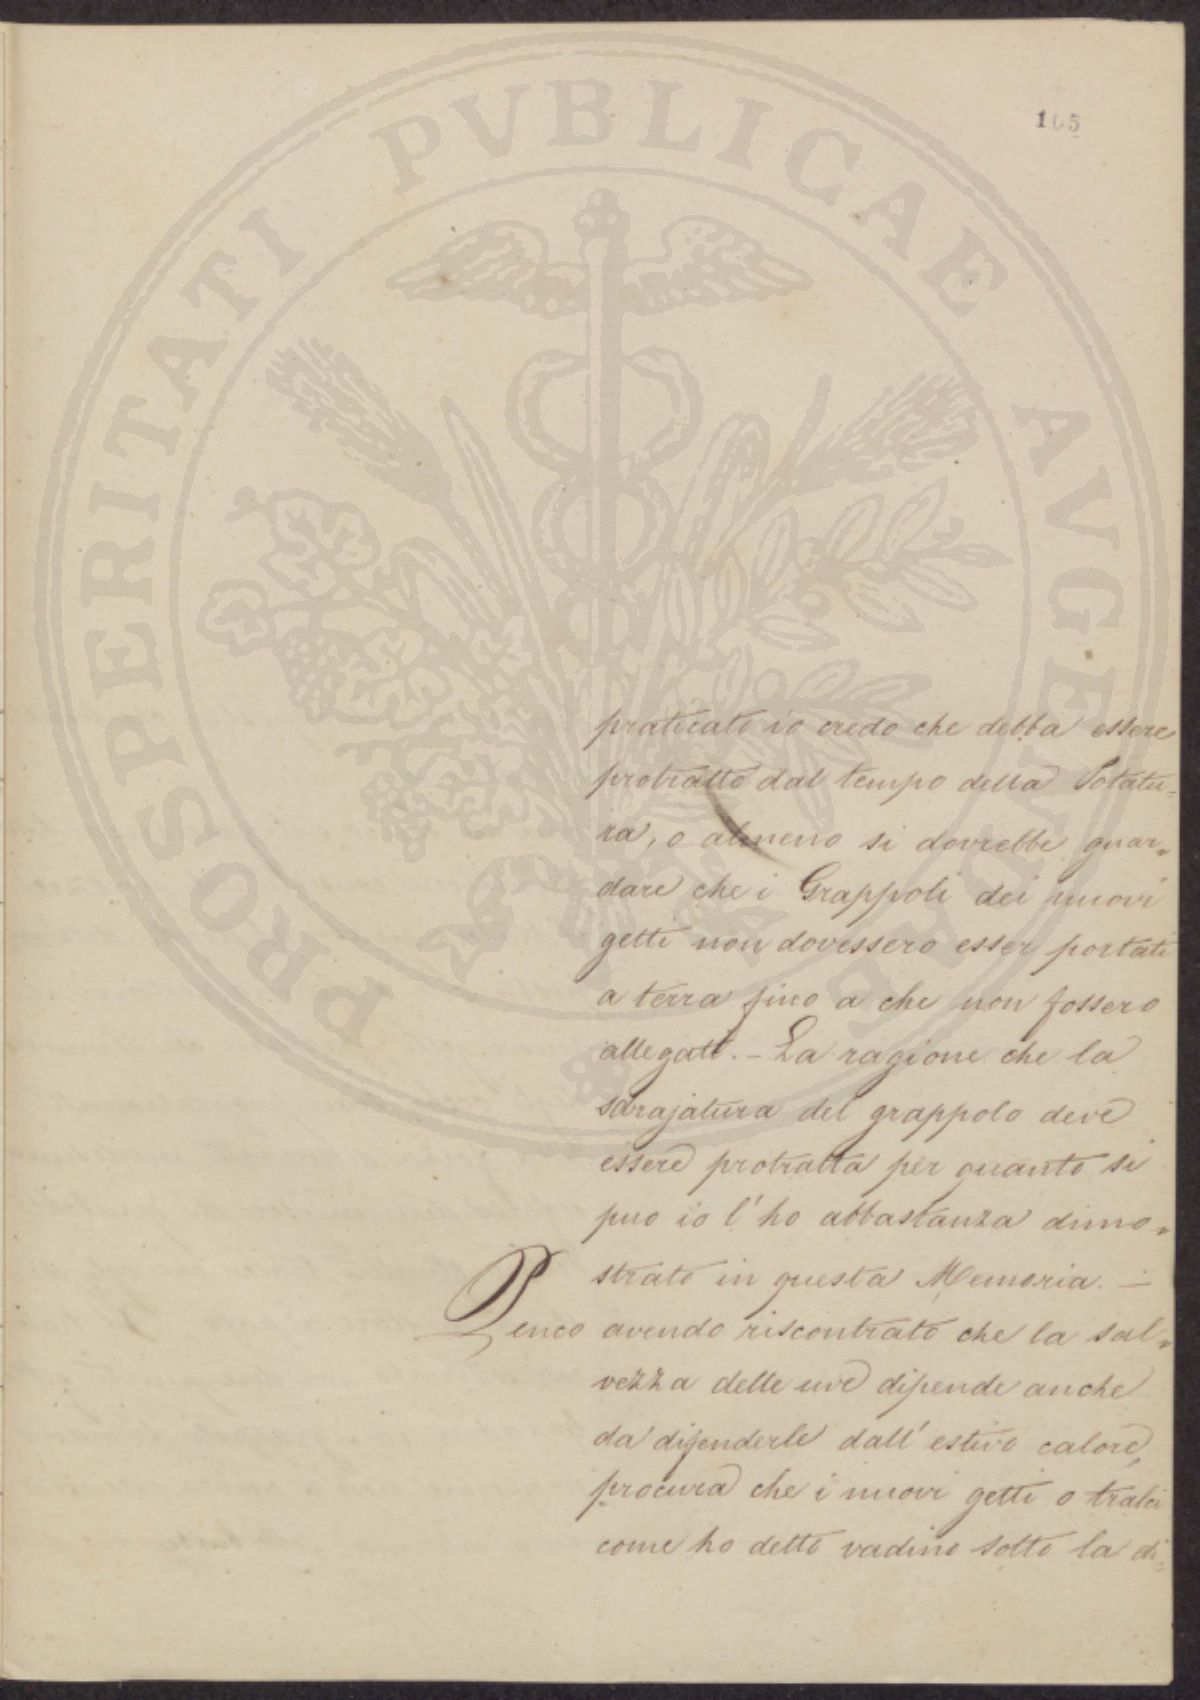 PROSPERITATI PUBLICAE AUGENDAE
105
praticato io credo che debba essere
protratto dal tempo della Potatu-
ra, o almeno si dovrebbe guar-
dare che i Grappoli dei nuovi
getti non dovessero esser portati
a terra fino a che non fossero
allegati. - La ragione che la
sdrajatura del grappolo deve
essere protratta per quanto si
puo io l'ho abbastanza dimo-
strato in questa Memoria. -
Penco avendo riscontrato che la sal-
vezza delle uve dipende anche
da difenderle dall'estivo calore,
procura che i nuovi getti o tralci
come ho detto vadino sotto la di-